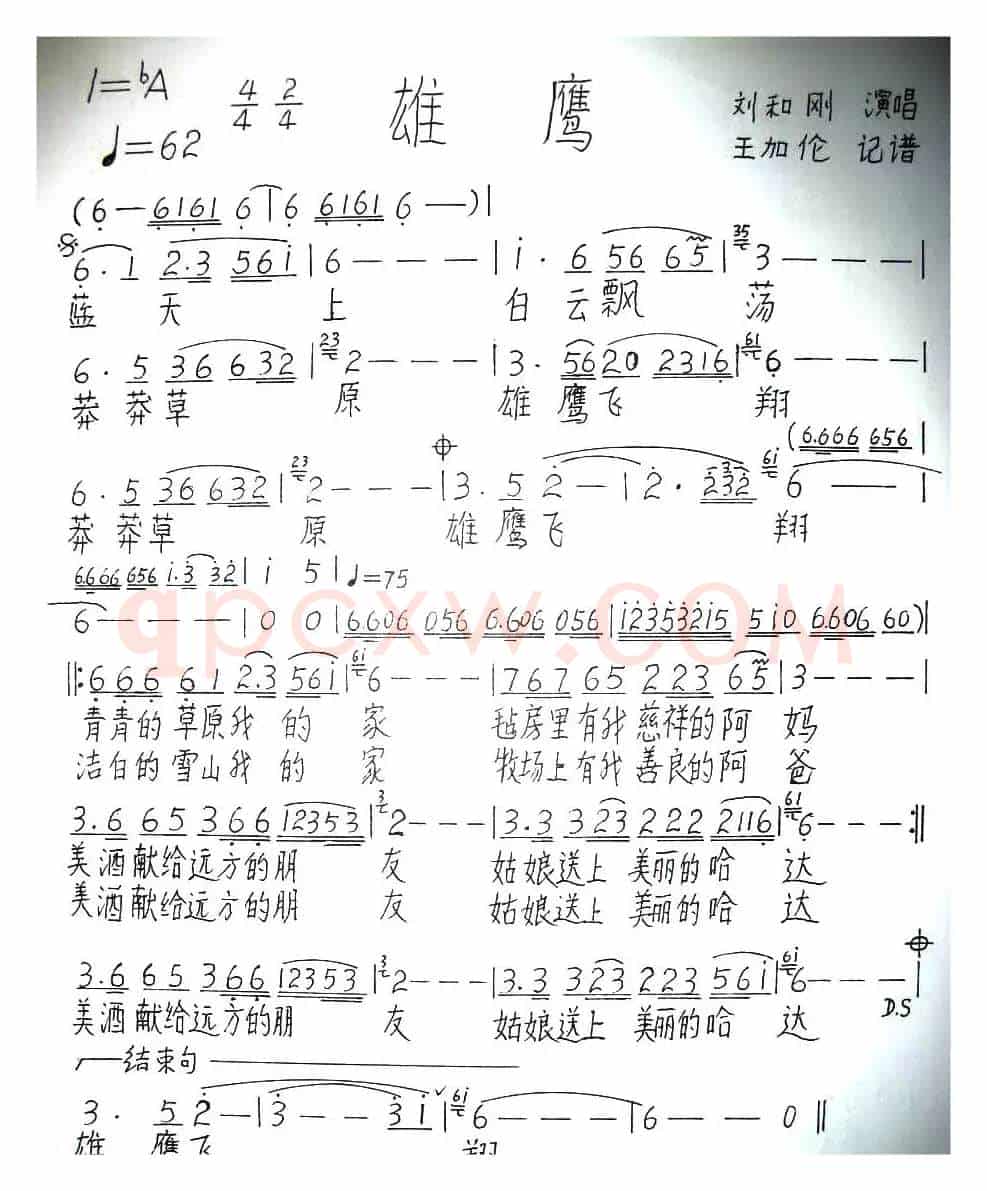 1=♭A 4/4 2/4 雄鹰 刘和刚 演唱
♩=62 王加伦 记谱
(6—6161 6 | 6 6161 6—)|
6·1 2·3 561 | 6——— | 1· 6 56 65 | 35 3———|
蓝天上 白云飘荡
6·5 36 632 | 23 2——— | 3· 5620 2316 | 61 6———|
莽莽草原 雄鹰飞翔
(6.666 656 |
6·5 36 632 | 23 2——— | 3· 5 2— | 2· 232 61 6——|
莽莽草原 雄鹰飞翔
6.606 656 1.3 32 | 1 5 | ♩=75
6——— | 0 0 | 6.606 056 6.606 056 | 12353215 510 6.606 60)|
‖:666 61 2.3 561 | 61 6——— | 767 65 223 65 | 3———|
青青的草原我的家 毡房里有我慈祥的阿妈
洁白的雪山我的家 牧场上有我善良的阿爸
3.6 65 366 12353 | 3 2——— | 3.3 323 222 2116 | 61 6———:‖
美酒献给远方的朋友 姑娘送上美丽的哈达
美酒献给远方的朋友 姑娘送上美丽的哈达
3.6 65 366 12353 | 3 2——— | 3.3 323 223 561 | 61 6———|
D.S
美酒献给远方的朋友 姑娘送上美丽的哈达
结束句
3· 5 2— | 3—— 31 | 61 6——— | 6——0 ‖
雄鹰飞翔
qpcxw.COM